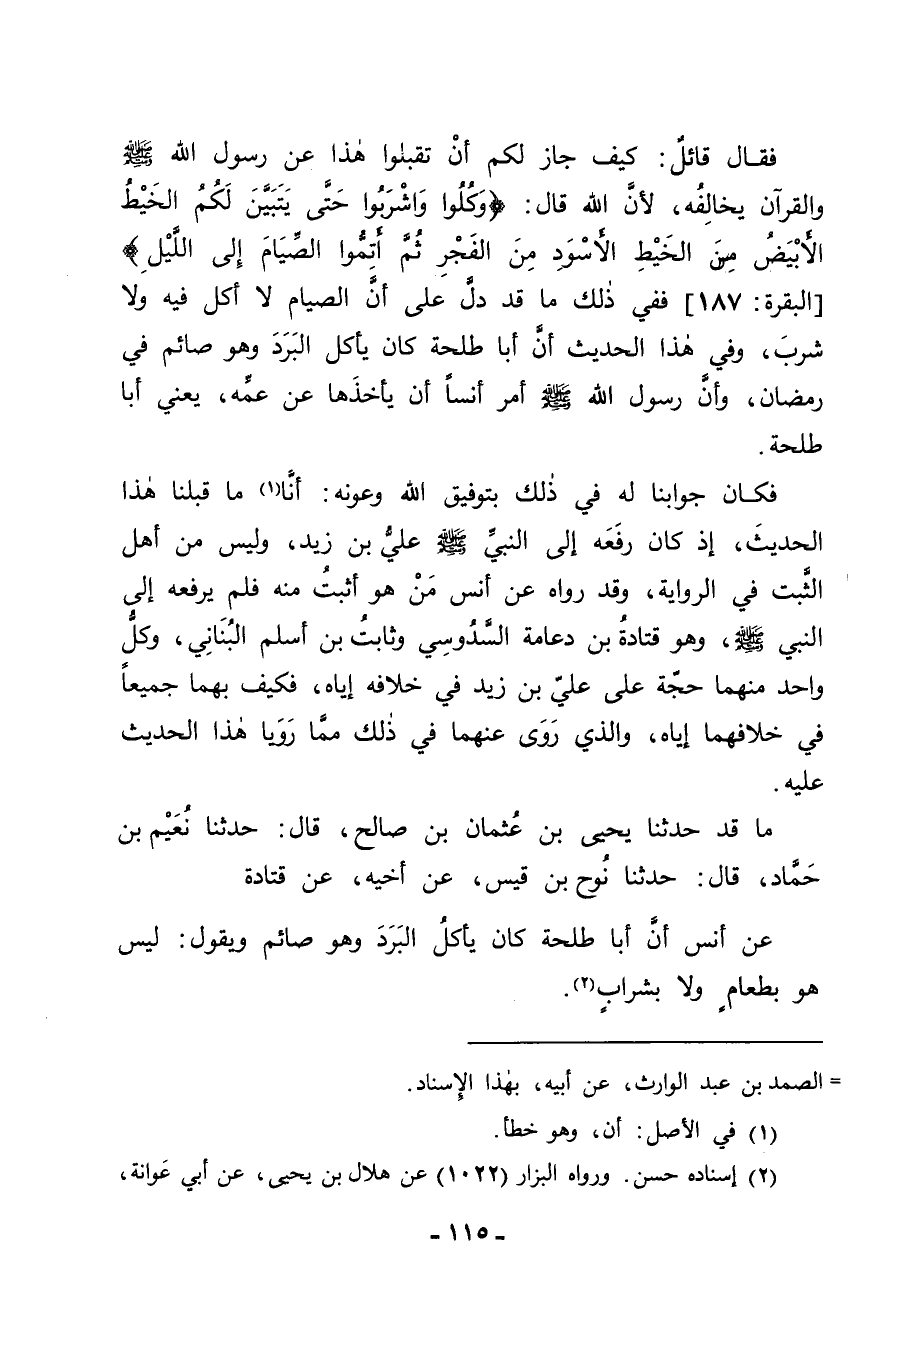 فقـال قائلٌ: كيف جاز لكم أنْ تقبلوا هٰذا عن رسول الله ﷺ
والقرآن يخالِفُه، لأنَّ الله قال: ﴿وَكُلُوا وَاشْرَبُوا حَتَّى يَتَبَيَّنَ لَكُمُ الخَيْطُ
الأَبْيَضُ مِنَ الخَيْطِ الأَسْوَدِ مِنَ الفَجْرِ ثُمَّ أَتِمُّوا الصِّيَامَ إلى اللَّيْلِ﴾
[البقرة: ١٨٧] ففي ذٰلك ما قد دلَّ على أنَّ الصيام لا أكل فيه ولا
شربَ، وفي هٰذا الحديث أنَّ أبا طلحة كان يأكل البَرَدَ وهو صائم في
رمضان، وأنَّ رسول الله ﷺ أمر أنساً أن يأخذَها عن عمِّه، يعني أبا
طلحة.
فكـان جوابنا له في ذٰلك بتوفيق الله وعونه: أنَّا(١) ما قبلنا هٰذا
الحديثَ، إذ كان رفَعَه إلى النبيِّ ﷺ عليُّ بن زيد، وليس من أهل
الثَّبت في الرواية، وقد رواه عن أنس مَنْ هو أثبتُ منه فلم يرفعه إلى
النبي ﷺ، وهو قتادةُ بن دعامة السَّدُوسِي وثابتُ بن أسلم البُنَاني، وكلُّ
واحد منهما حجّة على عليّ بن زيد في خلافه إياه، فكيف بهما جميعاً
في خلافهما إياه، والذي رَوَى عنهما في ذٰلك ممَّا رَوَيا هٰذا الحديث
عليه.
ما قد حدثنا يحيى بن عُثمان بن صالح، قال: حدثنا نُعَيْم بن
حَمَّاد، قال: حدثنا نُوح بن قيس، عن أخيه، عن قتادة
عن أنس أنَّ أبا طلحة كان يأكلُ البَرَدَ وهو صائم ويقول: ليس
هو بطعامٍ ولا بشرابٍ(٢).
= الصمد بن عبد الوارث، عن أبيه، بهٰذا الإِسناد.
(١) في الأصل: أن، وهو خطأ.
(٢) إسناده حسن. ورواه البزار (١٠٢٢) عن هلال بن يحيى، عن أبي عَوانة،
- ١١٥ -